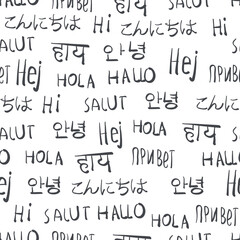 Hej こんにちは Hi
Hi SALUT हाय 안녕
ПРИВЕТ HOLA HALLO Hej
こんにちは Hi SALUT
SALUT 안녕 こんにちは
Hej HOLA हाय ПРИВЕТ
HALLO
안녕 こんにちは Hej 안녕
Hi SALUT HALLO ПРИВЕТ
हाय 안녕 HOLA